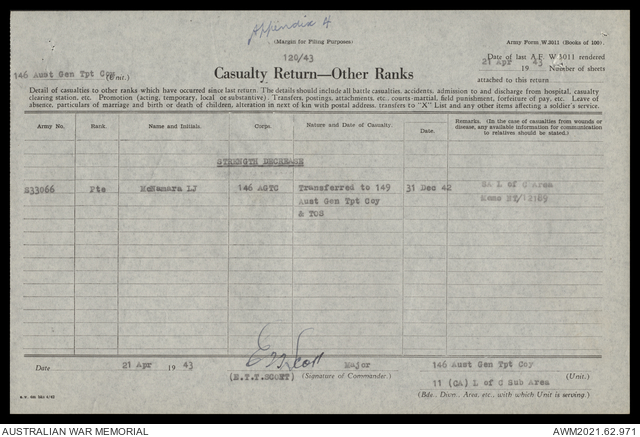 Appendix 4
(Margin for Filing Purposes)
Army Form W.3011 (Books of 100).
120/43
Date of last A.F. W 3011 rendered
21 Apr 19 43
146 Aust Gen Tpt Coy (Unit.)
Casualty Return—Other Ranks
Number of sheets
attached to this return
Detail of casualties to other ranks which have occurred since last return. The details should include all battle casualties, accidents, admission to and discharge from hospital, casualty
clearing station, etc. Promotion (acting, temporary, local or substantive). Transfers, postings, attachments, etc., courts-martial, field punishment, forfeiture of pay, etc. Leave of
absence, particulars of marriage and birth or death of children, alteration in next of kin with postal address, transfers to "X" List and any other items affecting a soldier's service.
Army No. Rank. Name and Initials. Corps. Nature and Date of Casualty. Date. Remarks. (In the case of casualties from wounds or
disease, any available information for communication
to relatives should be stated.)
STRENGTH DECREASE
S33066 Pte McNamara LJ 146 AGTC Transferred to 149 31 Dec 42 SA L of C Area
Aust Gen Tpt Coy Memo
& TOS
Date 21 Apr 19 43 Major 146 Aust Gen Tpt Coy
(E.T.T.SCOTT) (Signature of Commander.) (Unit.)
11 (CA) L of C Sub Area
(Bde., Divn., Area, etc., with which Unit is serving.)
AUSTRALIAN WAR MEMORIAL AWM2021.62.971